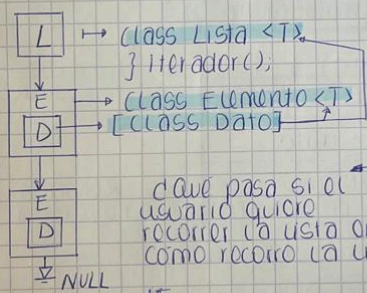 L → Class Lista <T>
} Iterador();
E → Class Elemento <T>
D → [Class Dato]
E
D
NULL
¿Qué pasa si el
usuario quiere
recorrer la lista
como recorro la